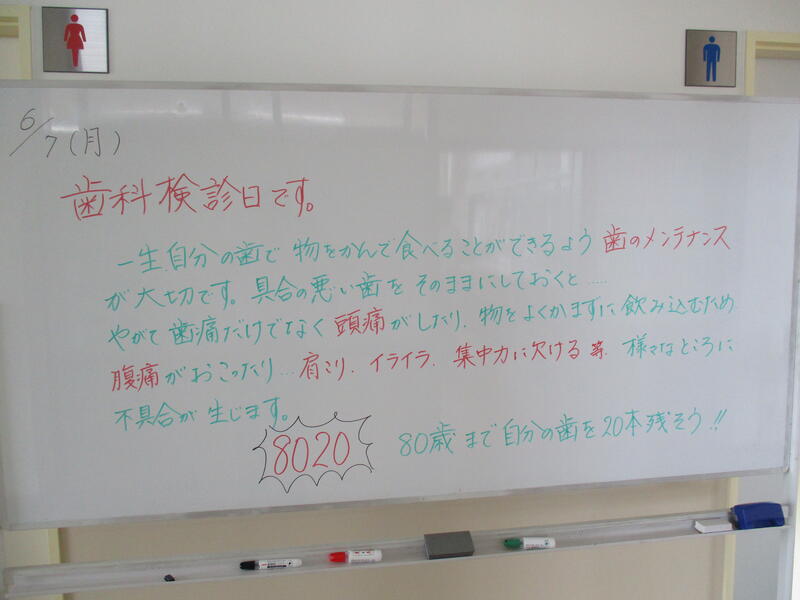 6/7(月)
歯科検診日です。
一生自分の歯で物をかんで食べることができるよう歯のメンテナンス
が大切です。具合の悪い歯をそのままにしておくと……
やがて歯痛だけでなく頭痛がしたり、物をよくかまずに飲み込むため
腹痛がおこったり…肩こり、イライラ、集中力に欠ける等、様々なところに
不具合が生じます。
8020 80歳まで自分の歯を20本残そう!!